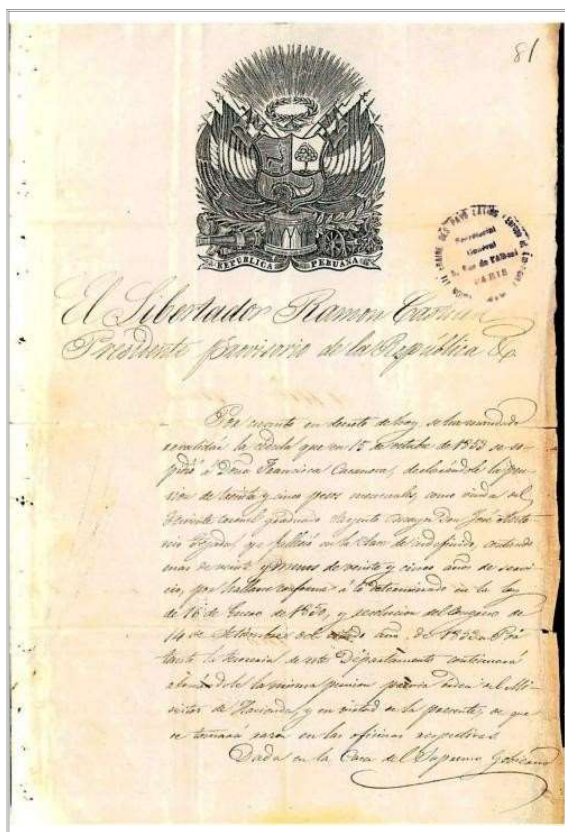 81
REPUBLICA PERUANA
Secretariat
Général
PARIS
El Libertador Ramon Castilla
Presidente provisorio de la República &.
Por cuanto en decreto de hoy, se ha mandado
revalidar la cédula que en 15 de octubre de 1853 se es-
pidió á Doña Francisca Casanova, declarándole la pen-
sion de treinta y cinco pesos mensuales, como viuda del
teniente coronel graduado sargento mayor Don José
que falleció en la clase de indefinido, contando
mas de veinte y menos de veinte y cinco años de servi-
cio, por hallarse conforme á lo determinado en la ley
de 16 de Enero de 1850, y resolucion del Congreso de
14 de del citado año de 1853. Por
tanto la tesorería de este Departamento continuará
la misma pension prévia órden del Mi-
nistro de Hacienda, y en virtud de la presente, de que
se tomará razon en las oficinas respectivas.
Dada en la Casa del Supremo Gobierno